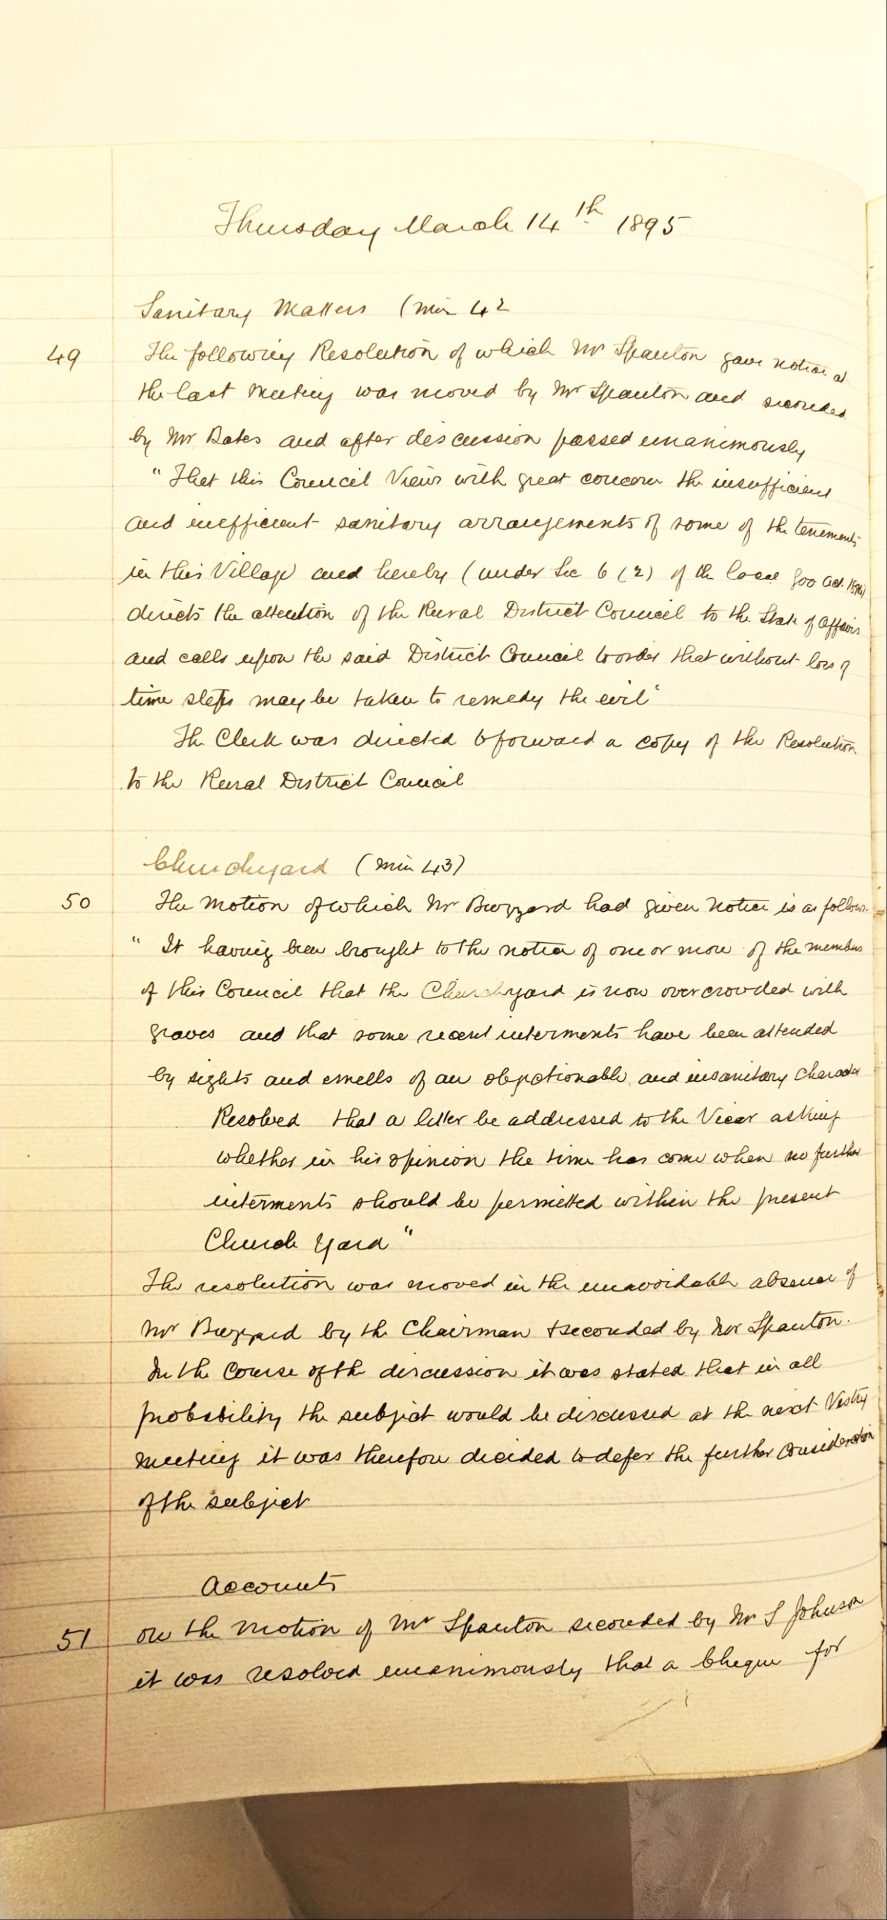 Thursday March 14th 1895
Sanitary Matters (Min 42
49 The following Resolution of which Mr Spanton gave notice at
the last Meeting was moved by Mr Spanton and seconded
by Mr Bates and after discussion passed unanimously
"That this Council Views with great concern the insufficient
and inefficient sanitary arrangements of some of the tenements
in this Village and hereby (under Sec 6 (2) of the Local Gov Act 1894)
directs the attention of the Rural District Council to the State of Affairs
and calls upon the said District Council to order that without loss of
time steps may be taken to remedy the evil"
The Clerk was directed to forward a copy of the Resolution
to the Rural District Council
Churchyard (Min 43)
50 The Motion of which Mr Buzzard had given notice is as follows.
"It having been brought to the notice of one or more of the members
of this Council that the Churchyard is now overcrowded with
graves and that some recent interments have been attended
by sights and smells of an objectionable and insanitary character
Resolved that a letter be addressed to the Vicar asking
whether in his opinion the time has come when no further
interments should be permitted within the present
Church Yard"
The resolution was moved in the unavoidable absence of
Mr Buzzard by the Chairman & seconded by Mr Spanton.
In the Course of the discussion it was stated that in all
probability the subject would be discussed at the next Vestry
meeting it was therefore decided to defer the further Consideration
of the subject
Accounts
51 On the Motion of Mr Spanton seconded by Mr S Johnson
it was resolved unanimously that a Cheque for